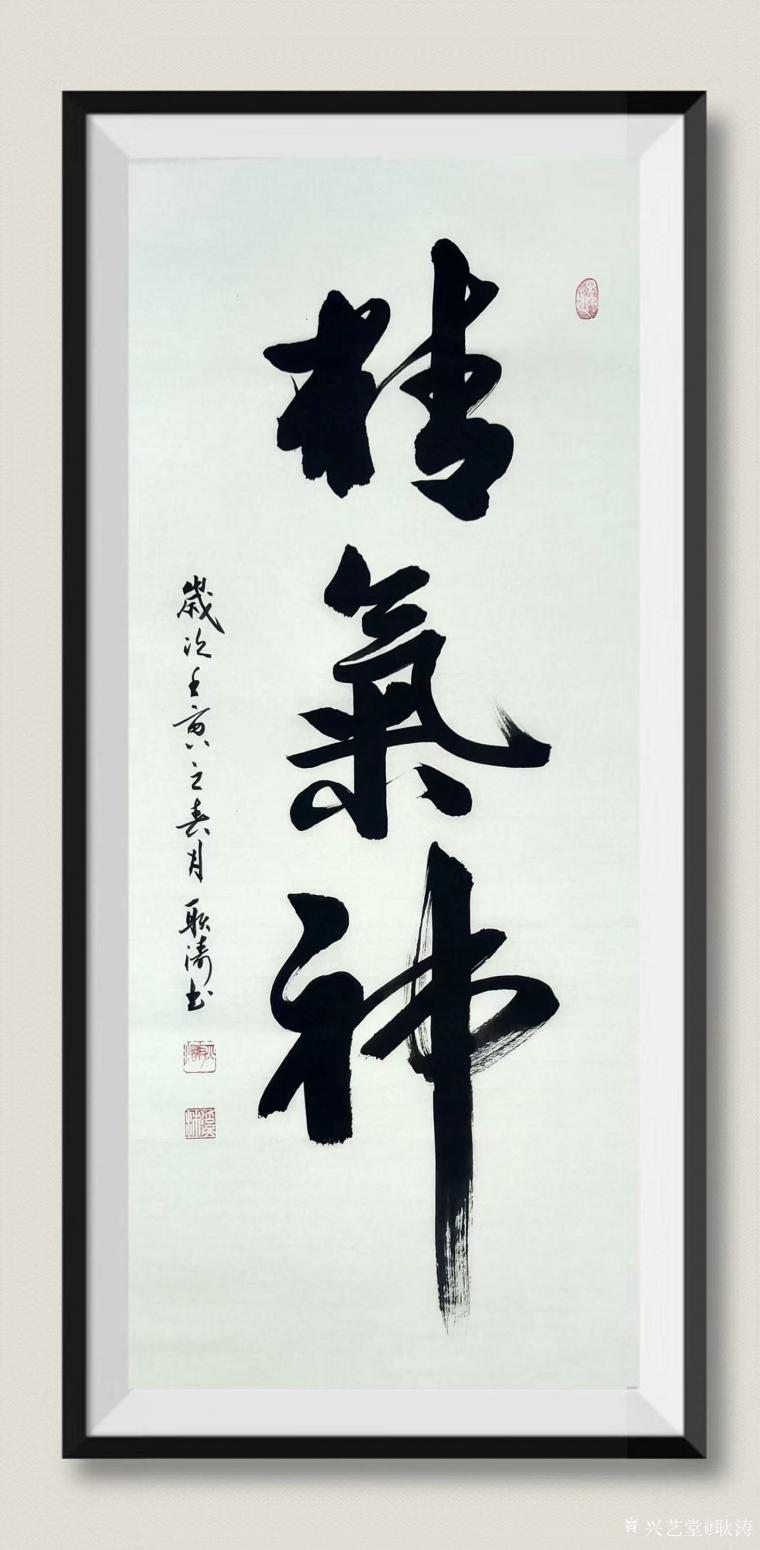 精氣神
歲次壬寅之春月耿濤书
兴艺堂@耿涛